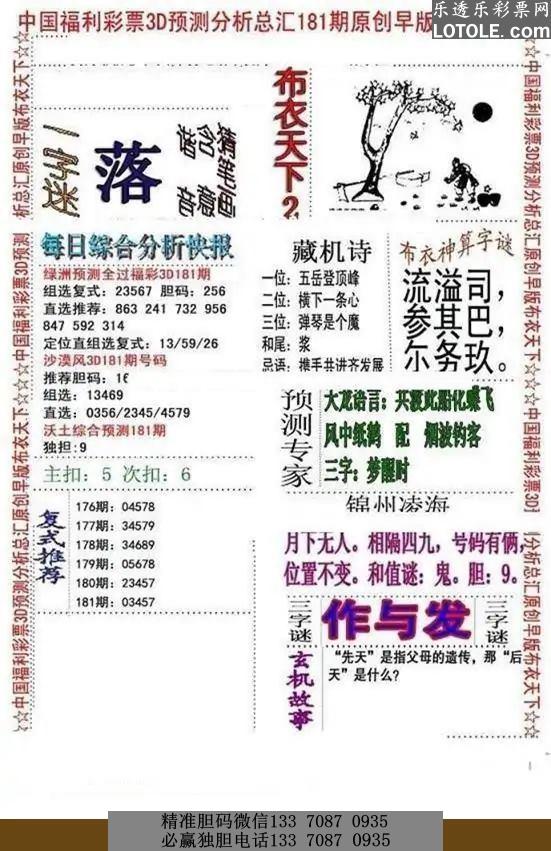 中国福利彩票3D预测分析总汇181期原创早版
乐透乐彩票网
LOTOLE.com
☆☆中国福利彩票3D预测分析总汇原创早版布衣天下☆☆
布衣天下2
一字迷
落
猜笔画
含意
每日综合分析快报
绿洲预测全过福彩3D181期
组选复式：23567 胆码：256
直选推荐：863 241 732 956
847 592 314
定位直组选复式：13/59/26
沙漠风3D181期号码
推荐胆码：16
组选：13469
直选：0356/2345/4579
沃土综合预测181期
独担：9
主扣：5 次扣：6
藏机诗
一位：五岳登顶峰
二位：横下一条心
三位：弹琴是个魔
和尾：浆
忌语：携手共进齐发展
布衣神算字谜
流溢司，
参其巴，
尔务玖。
预测专家
大龙语言：共渡此船化蝶飞
风中纸鹤 配 烟波钓客
三字：梦醒时
锦州凌海
复式推荐
176期：04578
177期：34579
178期：34689
179期：05678
180期：23457
181期：03457
月下无人。相隔四九，号码有俩，
位置不变。和值谜：鬼。胆：9。
三字谜
作与发
三字谜
玄机故事
“先天”是指父母的遗传，那“后
天”是什么？
精准胆码微信133 7087 0935
必赢独胆电话133 7087 0935